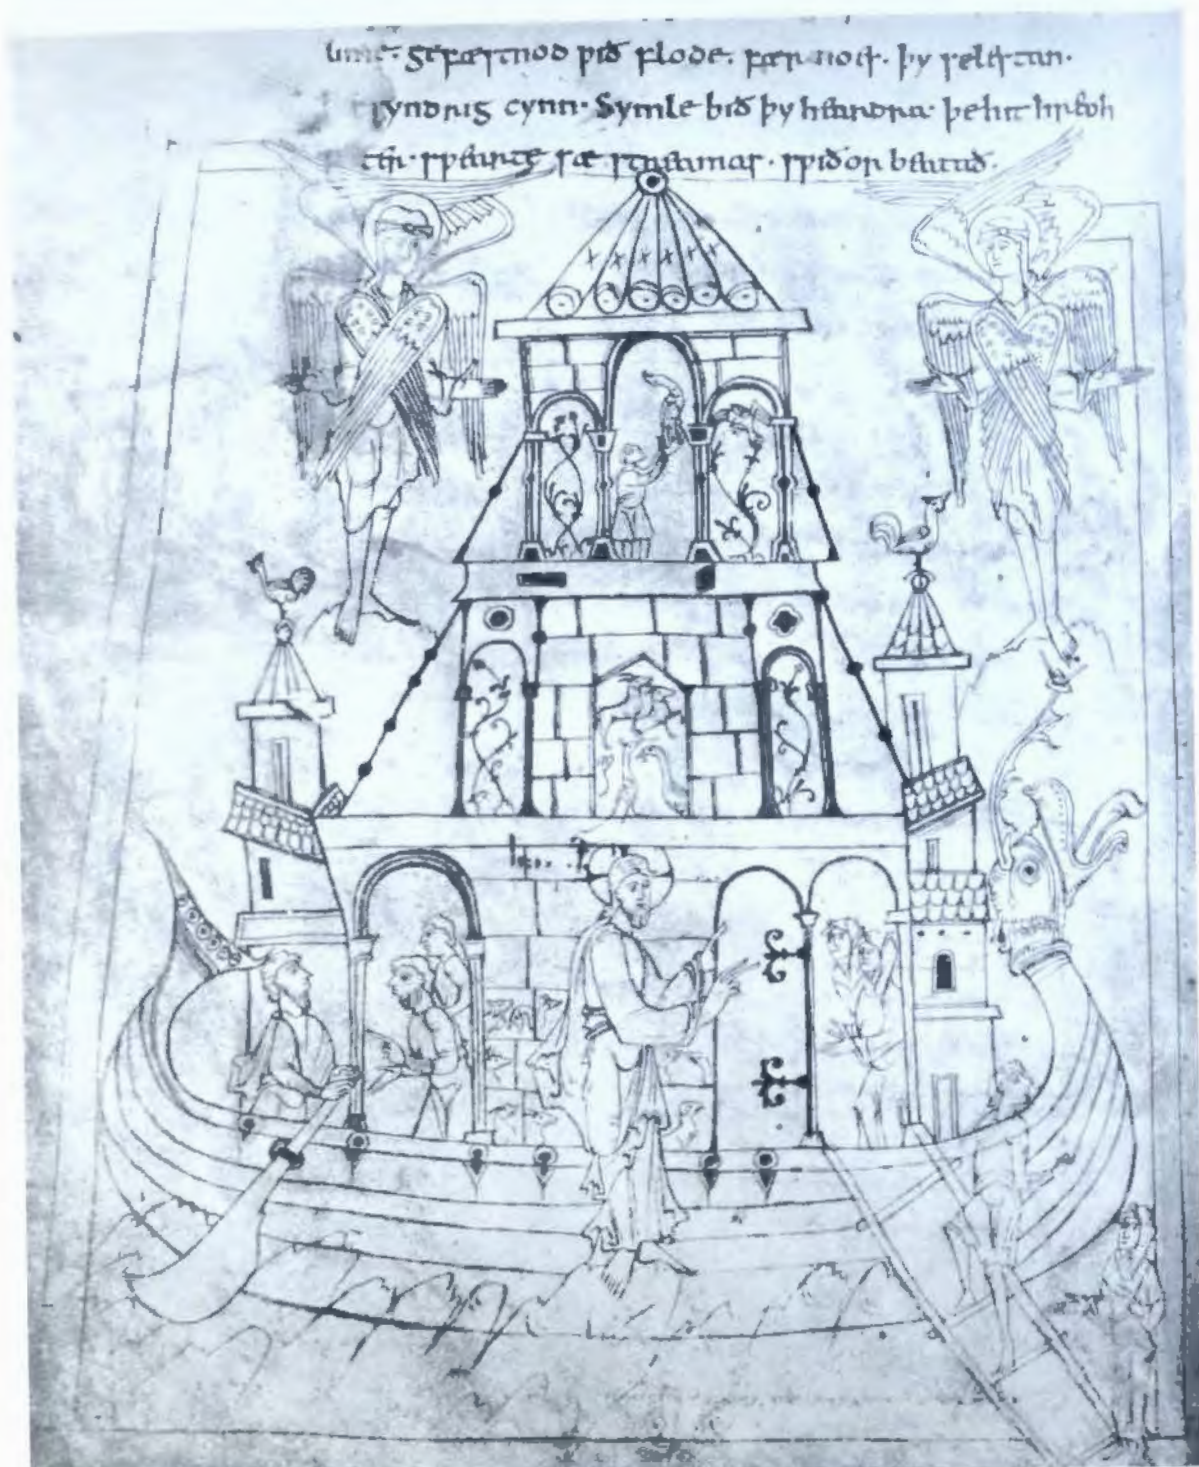 lime· gefæstnod ƿið flode· fær noes· þy selestan·
syndrig cynn· Symle bið þy heardra· þe hit hreoh
ter· sƿearte sæ streamas· sƿiðor beatað·